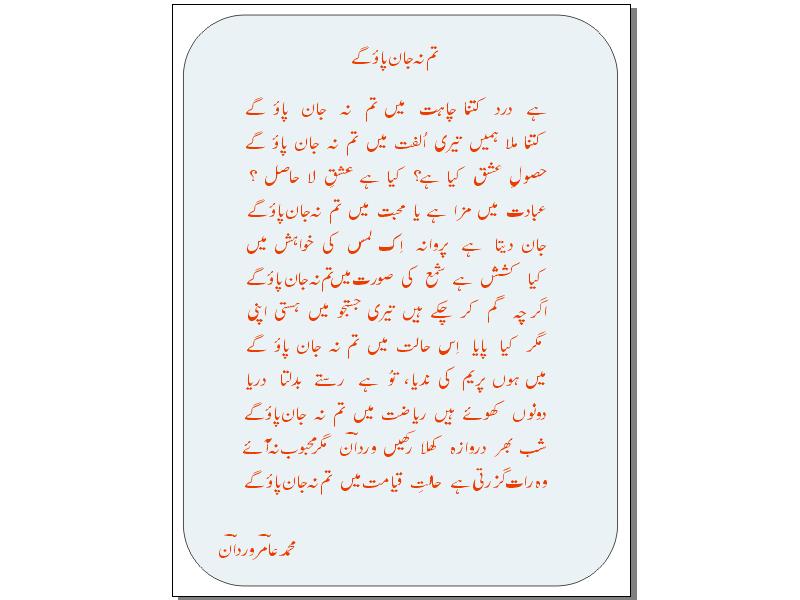 تم نہ جان پاؤ گے
ہے درد کتنا چاہت میں تم نہ جان پاؤ گے
کتنا ملا ہمیں تیری اُلفت میں تم نہ جان پاؤ گے
حصولِ عشق کیا ہے؟ کیا ہے عشقِ لا حاصل ؟
عبادت میں مزا ہے یا محبت میں تم نہ جان پاؤ گے
جان دیتا ہے پروانہ اِک لمس کی خواہش میں
کیا کشش ہے شمع کی صورت میں تم نہ جان پاؤ گے
اگرچہ گم کر چکے ہیں تیری جستجو میں ہستی اپنی
مگر کیا پایا اِس حالت میں تم نہ جان پاؤ گے
میں ہوں پریم کی ندیا، تُو ہے رستے بدلتا دریا
دونوں کھوئے ہیں ریاضت میں تم نہ جان پاؤ گے
شب بھر دروازہ کھلا رکھیں وردانؔ مگر محبوب نہ آئے
وہ رات گزرتی ہے حالتِ قیامت میں تم نہ جان پاؤ گے
محمد عامرؔ وردانؔ